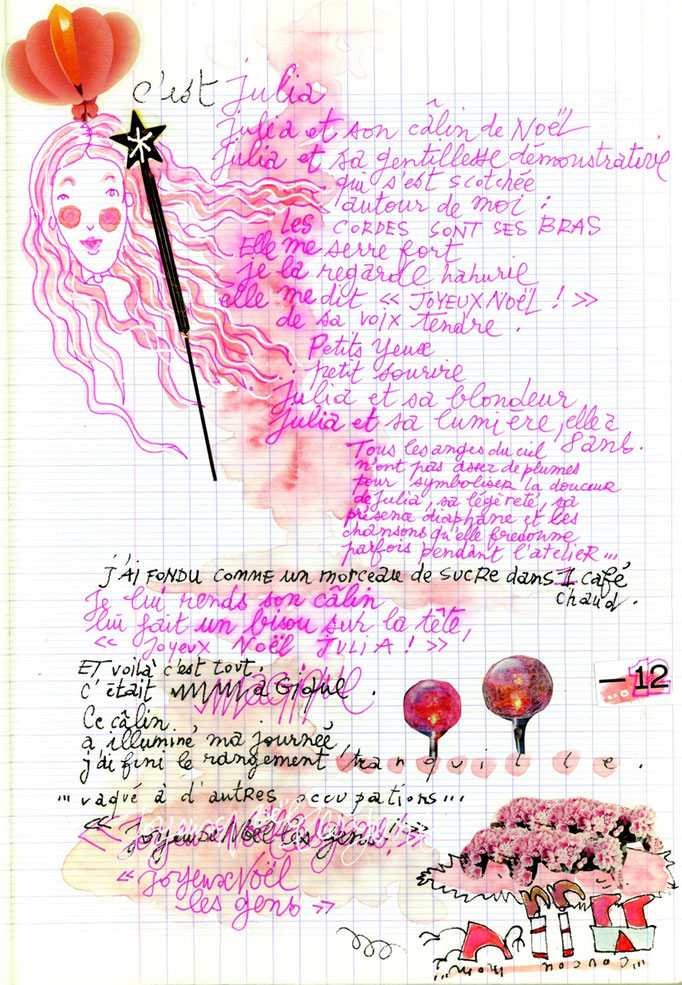 c'est julia
julia et son câlin de Noël
julia et sa gentillesse démonstrative
qui s'est scotchée
autour de moi :
Les CORDES SONT SES BRAS
Elle me serre fort
je la regarde hahurie
elle me dit « JOYEUX NOËL ! »
de sa voix tendre .
Petits yeux
petit sourire
Julia et sa blondeur
julia et sa lumière, elle a
8 ans.
Tous les anges du ciel
n'ont pas assez de plumes
pour symboliser la douceur
de julia, sa légèreté, sa
présence diaphane et les
chansons qu'elle fredonne
parfois pendant l'atelier...
j'AI FONDU COMME un morceau de sucre dans 1 café
chaud.
Je lui rends son câlin
lui fait un bisou sur la tête,
« Joyeux Noël JULIA ! »
ET voilà c'est tout.
C'était magique .
-12
Ce câlin
a illuminé ma journée
j'ai fini le rangement, tranquille.
... vaqué à d'autres occupations...
« joyeux Noël les gens ! »
« joyeux Noël
les gens »